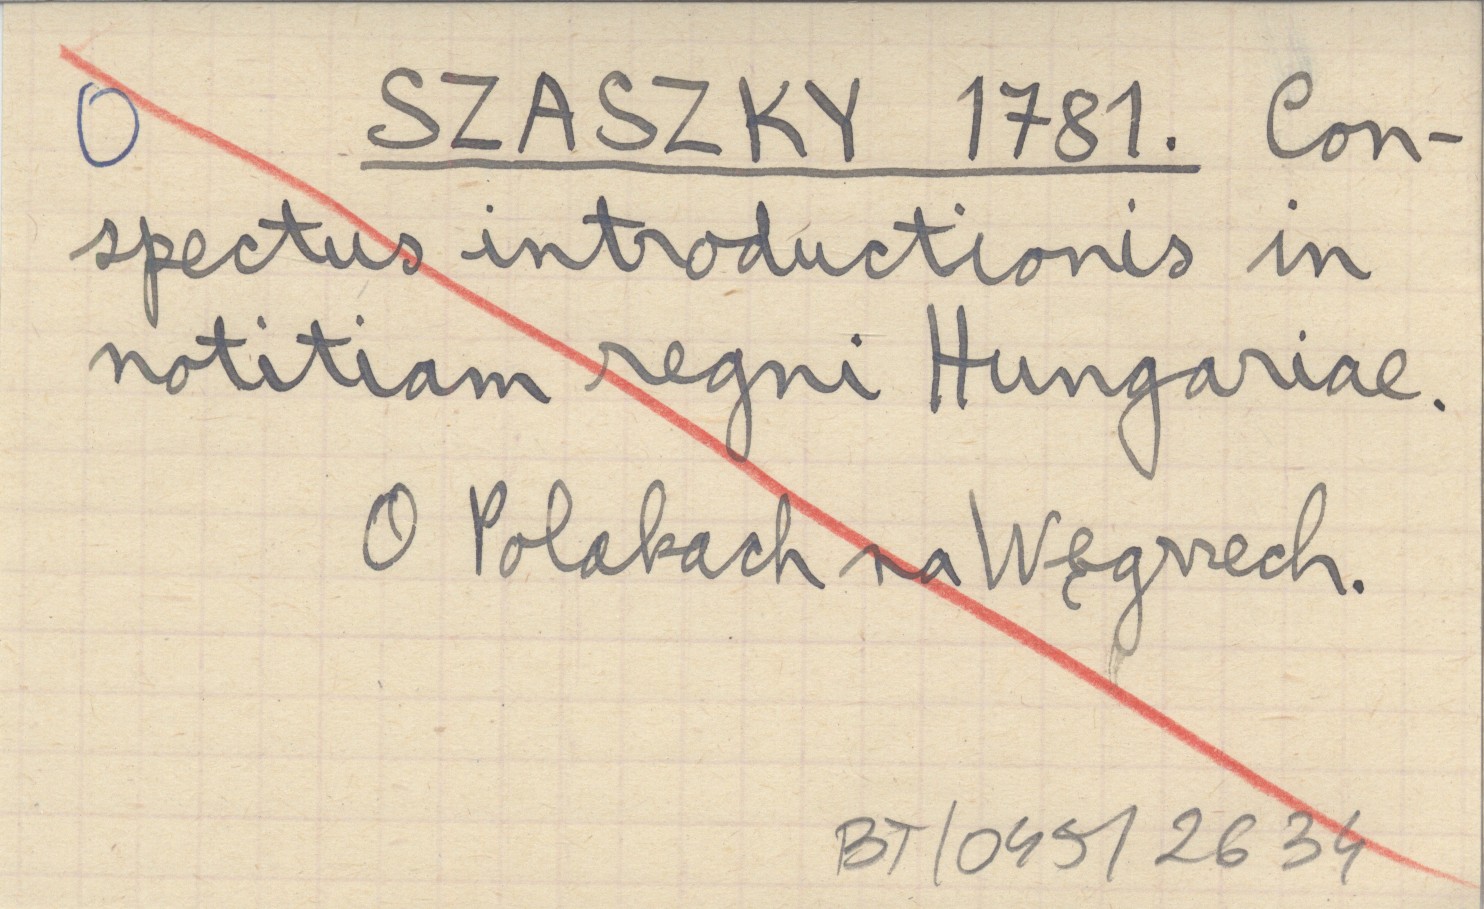 O SZASZKY 1781. Con-
spectus introductionis in
notitiam regni Hungariae.
O Polakach na Węgrzech.
BT/045/2634